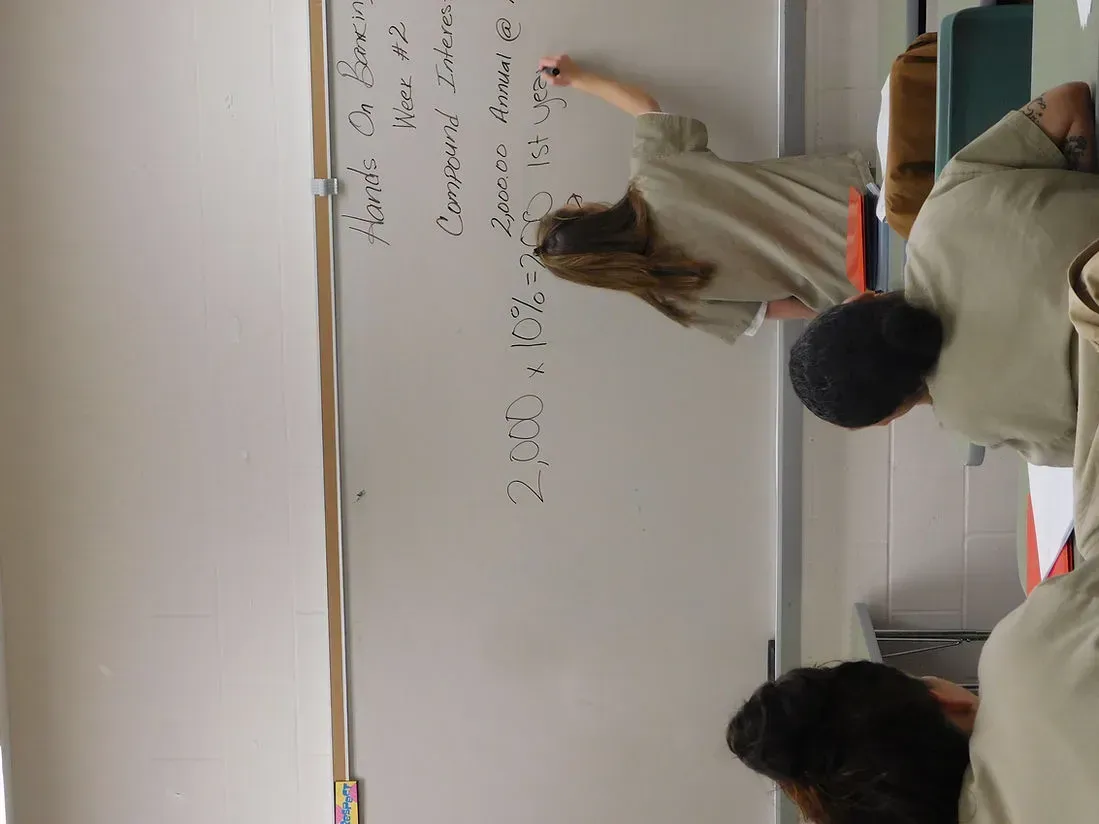 Hands On Banking
Week #2
Compound Interest
2,000.00 Annual @
2,000 x 10% = 200 1st year
RESPECT